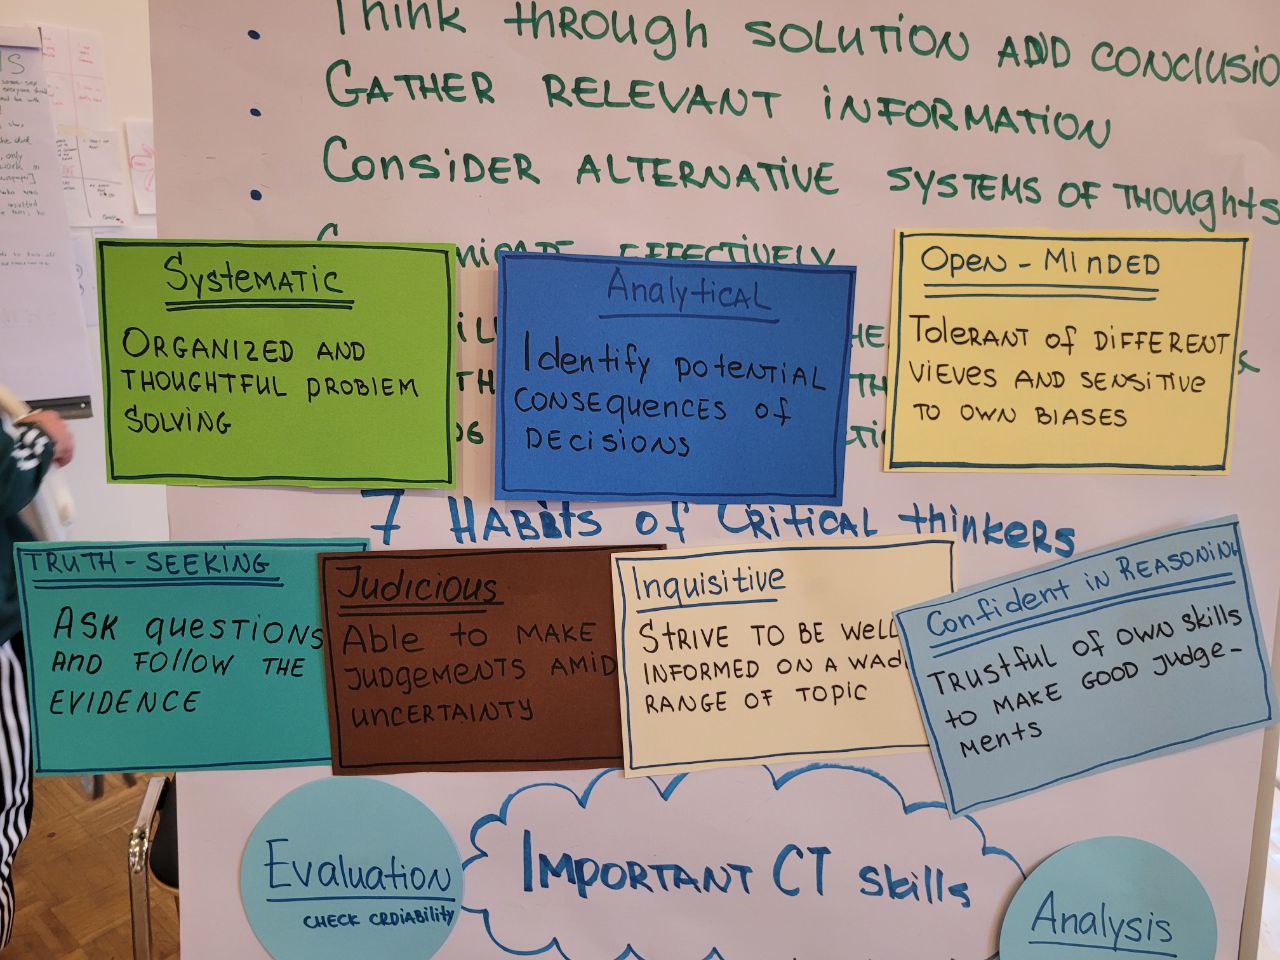 Think through SOLUTION AND CONCLUSIO
GATHER RELEVANT INFORMATION
CONSIDER ALTERNATIVE SYSTEMS OF THOUGHTS
EFFECTIVELY
Systematic
ORGANIZED AND
THOUGHTFUL PROBLEM
SOLVING
Analytical
Identify potential
CONSEQUENCES of
DECISIONS
OPEN - MINDED
TOLERANT of DIFFERENT
VIEVES AND SENSITIVE
TO OWN BIASES
7 HABITS of CRITICAL thinkers
TRUTH - SEEKING
ASK QUESTIONS
AND FOLLOW THE
EVIDENCE
Judicious
Able to MAKE
JUDGEMENTS AMID
UNCERTAINTY
Inquisitive
STRIVE TO BE WELL
INFORMED ON A WAD
RANGE OF TOPIC
Confident in REASONING
TRUSTFUL OF OWN SKILLS
to MAKE GOOD JUDGE-
MENTS
Evaluation
CHECK CRDIABILITY
IMPORTANT CT skills
Analysis